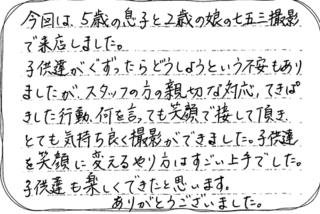 今回は、5歳の息子と2歳の娘の七五三撮影
で来店しました。
子供達がぐずったらどうしようという不安もあり
ましたが、スタッフの方の親切な対応、てきぱ
きした行動、何を言っても笑顔で接して頂き、
とても気持ち良く撮影ができました。子供達
を笑顔に変えるやり方はすごい上手でした。
子供達も楽しくできたと思います。
ありがとうございました。